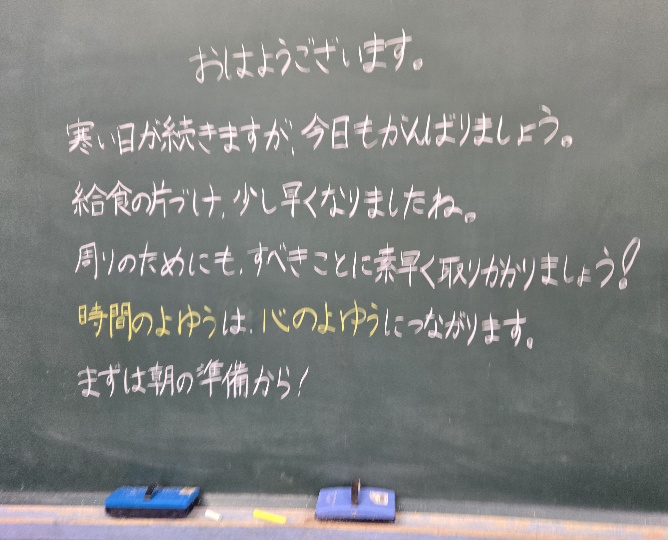 おはようございます。
寒い日が続きますが、今日もがんばりましょう。
給食の片づけ、少し早くなりましたね。
周りのためにも、すべきことに素早く取りかかりましょう!
時間のよゆうは、心のよゆうにつながります。
まずは朝の準備から!